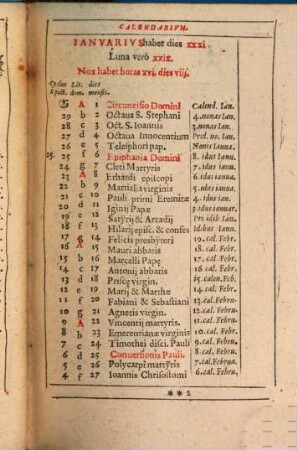 CALENDARIVM.
IANVARIVS habet dies xxxi.
Luna verò xxix.
Nox habet horas xvi. dies viij.
Cyclus Lit. dies
Epact. dom. mensis.
A 1 Circuncisio Domini Calend. Ian.
29 b 2 Octaua S. Stephani 4. nonas Ian.
28 c 3 Oct. S. Ioannis 3. nonas Ian.
27 d 4 Octaua Innocentium Prid. no. Ian.
26 e 5 Telesphori pap. Nonis Ianua.
25. 25 f 6 Epiphania Domini 8. idus Ianua.
24 g 7 Cleti Martyris 7. idus Ianua.
23 A 8 Erhardi episcopi 6. idus Ianua.
22 b 9 Martialis virginis 5. idus Ianua.
21 c 10 Pauli primi Eremitæ 4. idus Ianua.
20 d 11 Iginij Papæ 3. idus Ianuar.
19 e 12 Satyrij & Arcadij Pri dieb. Ian.
18 f 13 Hilarij episc. & confes Idibus Ian.
17 g 14 Felicis presbyteri 19. cal. Febr.
16 A 15 Mauri abbatis 18. cal. Febr.
15 b 16 Marcelli Papę 17. cal. Febr.
14 c 17 Antonij abbatis 16. cal. Febr.
13 d 18 Priscę virgin. 15. cal. Febr.
12 e 19 Marij & Marthæ 14. cal. Febr.
11 f 20 Fabiani & Sebastiani 13. cal. Febru.
10 g 21 Agnetis virgin. 12. cal. Febr.
9 A 22 Vincentij martyris. 11. cal. Febr.
8 b 23 Emerentianæ virginis 10. cal. Febr.
7 c 24 Timothei disci. Pauli 9. cal. Febr.
6 d 25 Conuersionis Pauli. 8. cal. Febr.
5 e 26 Policarpi martyris 7. cal. Febru.
4 f 27 Ioannis Chrisostomi 6. cal. Febr.
** 2